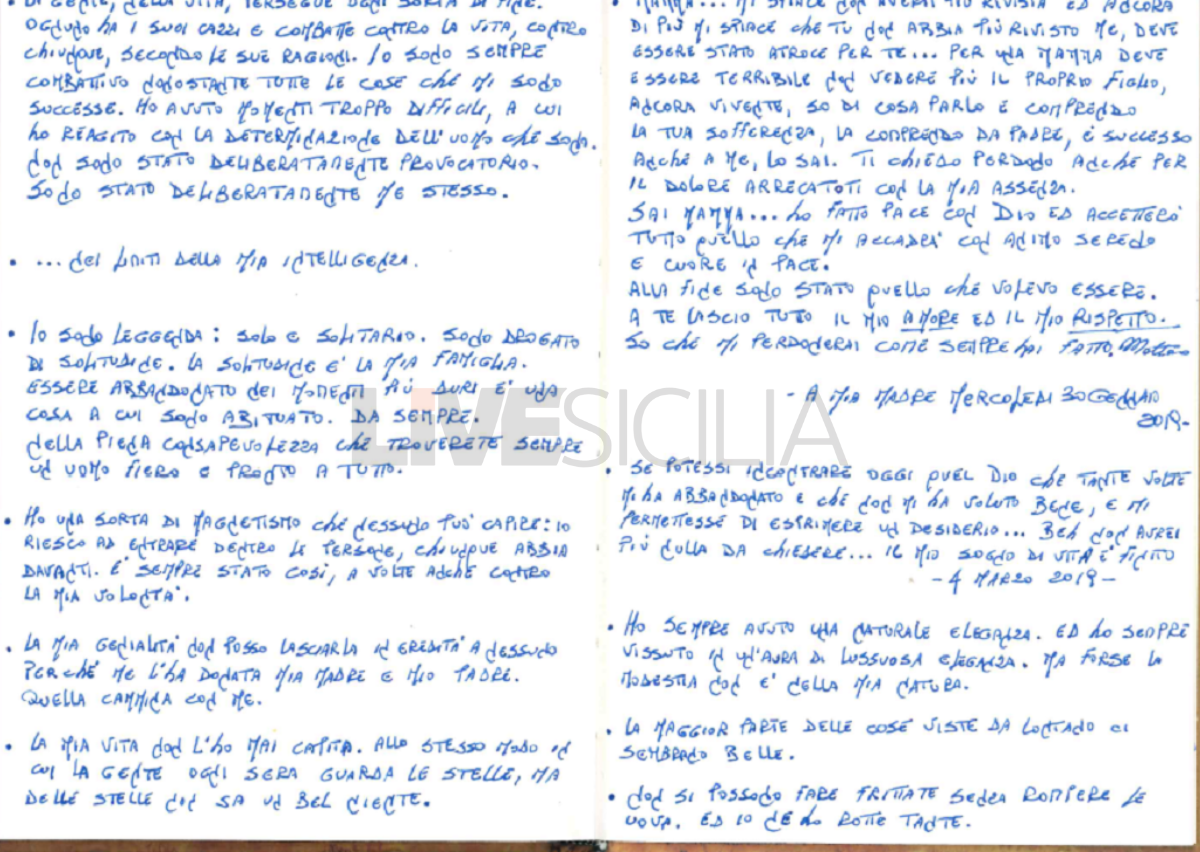 DI GENTE, NELLA VITA, PERSEGUE OGNI SORTA DI FINE.
OGNUNO HA I SUOI CAZZI E COMBATTE CONTRO LA VITA, CONTRO
CHIUNQUE, SECONDO LE SUE RAGIONI. IO SONO SEMPRE
COMBATTIVO NONOSTANTE TUTTE LE COSE CHE MI SONO
SUCCESSE. HO AVUTO MOMENTI TROPPO DIFFICILI, A CUI
HO REAGITO CON LA DETERMINAZIONE DELL'UOMO CHE SONO.
NON SONO STATO DELIBERATAMENTE PROVOCATORIO.
SONO STATO DELIBERATAMENTE ME STESSO.
• ... NEI LIMITI DELLA MIA INTELLIGENZA.
• IO SONO LEGGENDA: SOLO E SOLITARIO. SONO DROGATO
DI SOLITUDINE. LA SOLITUDINE E' LA MIA FAMIGLIA.
ESSERE ABBANDONATO NEI MOMENTI PIÙ DURI E' UNA
COSA A CUI SONO ABITUATO. DA SEMPRE.
NELLA PIENA CONSAPEVOLEZZA CHE TROVERETE SEMPRE
UN UOMO FIERO E PRONTO A TUTTO.
• HO UNA SORTA DI MAGNETISMO CHE NESSUNO PUÒ CAPIRE: IO
RIESCO AD ENTRARE DENTRO LE PERSONE, CHIUNQUE ABBIA
DAVANTI. E' SEMPRE STATO COSÌ, A VOLTE ANCHE CONTRO
LA MIA VOLONTA'.
• LA MIA GENIALITA' NON POSSO LASCIARLA IN EREDITA' A NESSUNO
PERCHÉ ME L'HA DONATA MIA MADRE E MIO PADRE.
QUELLA CAMMINA CON ME.
• LA MIA VITA NON L'HO MAI CAPITA. ALLO STESSO MODO IN
CUI LA GENTE OGNI SERA GUARDA LE STELLE, MA
DELLE STELLE NON SA UN BEL NIENTE.
• MAMMA... MI SPIACE NON AVERTI PIÙ RIVISTA ED ANCORA
DI PIÙ MI SPIACE CHE TU NON ABBIA PIÙ RIVISTO ME, DEVE
ESSERE STATO ATROCE PER TE... PER UNA MAMMA DEVE
ESSERE TERRIBILE NON VEDERE PIÙ IL PROPRIO FIGLIO,
ANCORA VIVENTE, SO DI COSA PARLO E COMPRENDO
LA TUA SOFFERENZA, LA COMPRENDO DA PADRE, È SUCCESSO
ANCHE A ME, LO SAI. TI CHIEDO PERDONO ANCHE PER
IL DOLORE ARRECATOTI CON LA MIA ASSENZA.
SAI MAMMA... HO FATTO PACE CON DIO ED ACCETTERÒ
TUTTO QUELLO CHE MI ACCADRA' CON ANIMO SERENO
E CUORE IN PACE.
ALLA FINE SONO STATO QUELLO CHE VOLEVO ESSERE.
A TE LASCIO TUTTO IL MIO AMORE ED IL MIO RISPETTO.
SO CHE MI PERDONERAI COME SEMPRE HAI FATTO. Matteo
- A MIA MADRE MERCOLEDI 30 GENNAIO
2019-
• SE POTESSI INCONTRARE OGGI QUEL DIO CHE TANTE VOLTE
MI HA ABBANDONATO E CHE NON MI HA VOLUTO BENE, E MI
PERMETTESSE DI ESPRIMERE UN DESIDERIO... BEH NON AVREI
PIÙ NULLA DA CHIEDERE... IL MIO SOGNO DI VITA E' FINITO
- 4 MARZO 2019 -
• HO SEMPRE AVUTO UNA NATURALE ELEGANZA. ED HO SEMPRE
VISSUTO IN UN'AURA DI LUSSUOSA ELEGANZA. MA FORSE LA
MODESTIA NON E' NELLA MIA NATURA.
• LA MAGGIOR PARTE DELLE COSE VISTE DA LONTANO CI
SEMBRANO BELLE.
• NON SI POSSONO FARE FRITTATE SENZA ROMPERE LE
UOVA. ED IO NE HO ROTTE TANTE.
LIVESICILIA